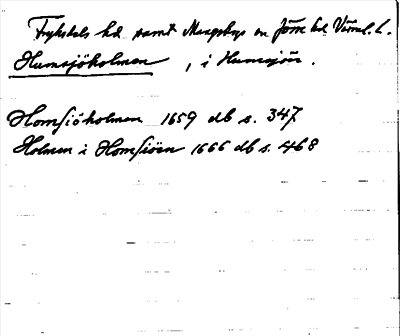 Frykdals hd samt Mangskogs sn Jösse hd Värml. l.
Humsjöholmen , i Humsjön.
Homsiöholmen 1659 db s. 347
Holmen i Homsiöen 1666 db s. 468